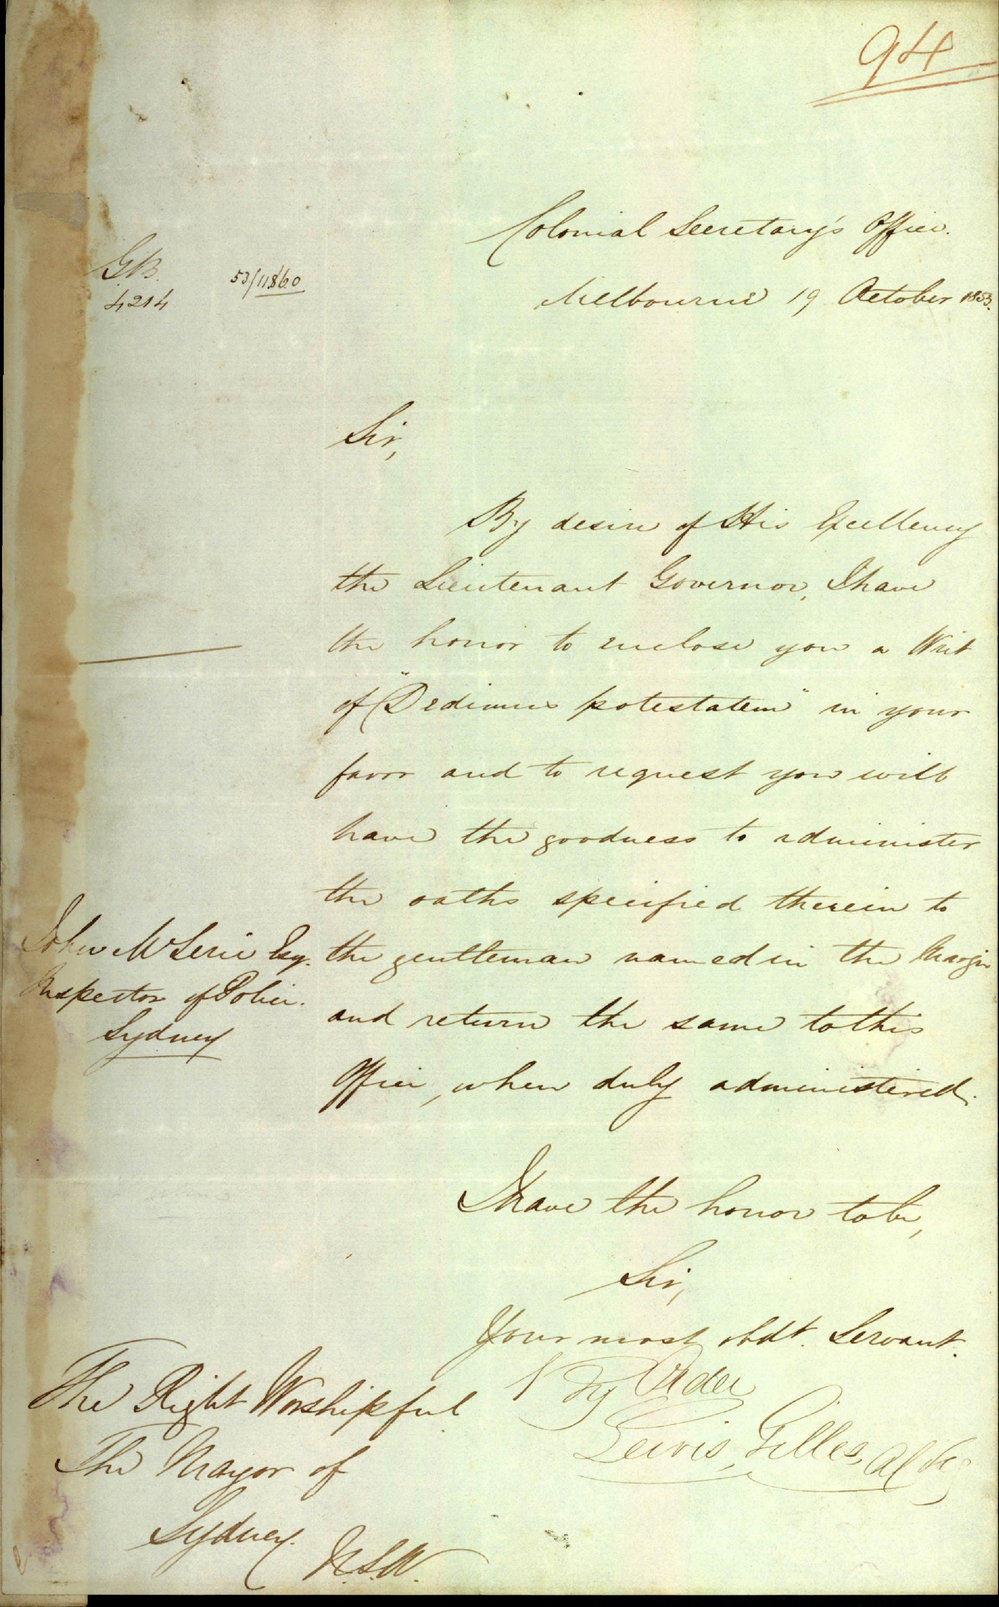 94
Colonial Secretary's Office.
Melbourne 19 October 1853.
G.B.
4214
53/11860
Sir,
By desire of His Excellency
the Lieutenant Governor, I have
the honor to enclose you a Writ
of "Dedimus potestatem" in your
favor and to request you will
have the goodness to administer
the oaths specified therein to
the gentleman named in the Margin
and return the same to this
Office, when duly administered.
John McLerie Esq.
Inspector of Police.
Sydney
I have the honor to be,
Sir,
Your most obdt. Servant.
By Order
Lewis Gilles
The Right Worshipful
The Mayor of
Sydney.
N.S.W.